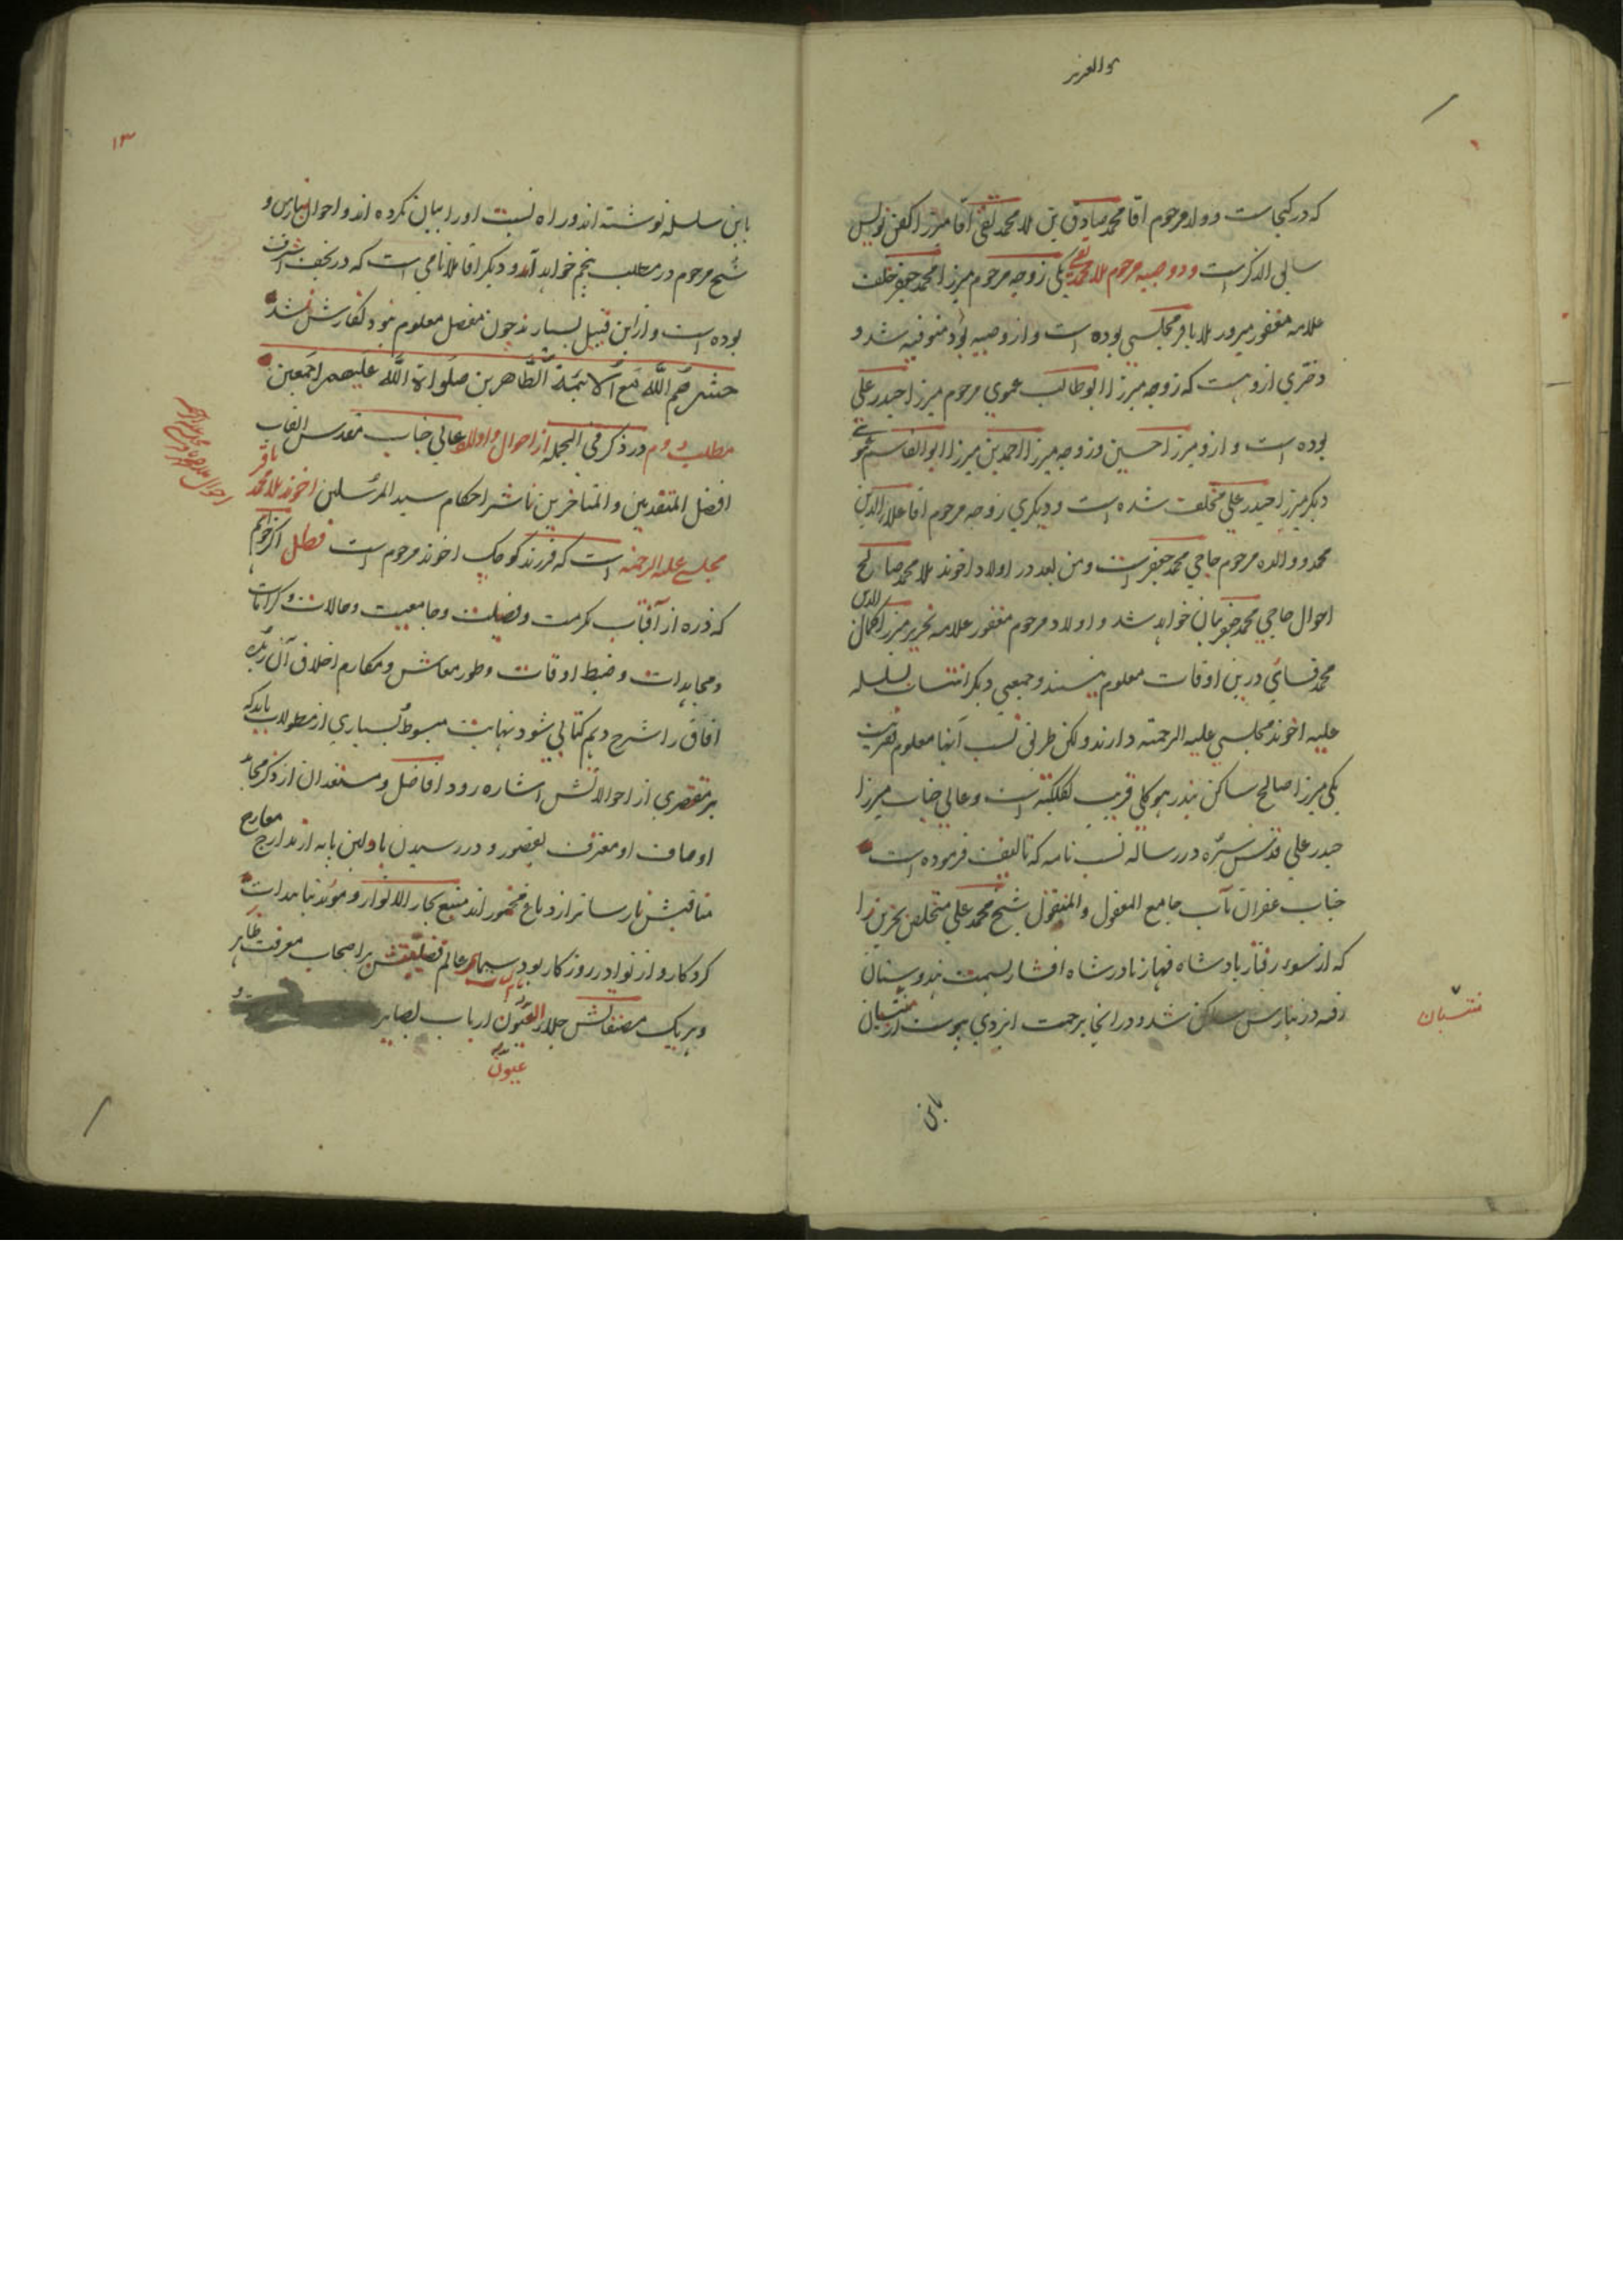 والعزیز
که در کجاست و ولد مرحوم اقا محمد صادق بن ملا محمد تقی اقا میرزا کفن نویس
سابق الذکر است و دو صبیه مرحوم ملا محمد تقی یکی زوجه مرحوم میرزا محمد جعفر خلف
علامه مغفور مبرور ملا باقر مجلسی بوده است و ازو صبیه بود متوفیه شد و
دختری ازو هست که زوجه میرزا ابوطالب عموی مرحوم میرزا حیدر علی
بوده است و ازو میرزا حسین و زوجه میرزا احمد بن میرزا ابوالقاسم
دیگر میرزا حیدر علی مخلف شده است و دیگری زوجه مرحوم اقا علاء الدین
محمد و والده مرحوم حاجی محمد جعفر است و من بعد در اولاد اخوند ملا محمد صالح
احوال حاجی محمد جعفر بیان خواهد شد و اولاد مرحوم مغفور علامه نحریر میرزا کمال الدین
محمد فسائی درین اوقات معلوم نیستند و جمعی دیگر انتساب بسلسله
علیه اخوند مجلسی علیه الرحمة دارند و لکن طرق نسب آنها معلوم فقیر نیست
یکی میرزا صالح ساکن بندر هوکلی قریب بکلکته است و عالی جناب میرزا
حیدر علی قدس سره در رساله نسب نامه که تالیف فرموده است
جناب غفران مآب جامع المعقول و المنقول شیخ محمد علی متخلص بحزین را
که از سوء رفتار پادشاه قهار نادر شاه افشار بسمت هندوستان
رفته در بنارس ساکن شد و در انجا برحمت ایزدی پیوست از منتسبان
منتسبان
باین
۱۳
باین سلسله نوشته اند و راه نسبت او را بیان نکرده اند و احوال بنارس و
شیخ مرحوم در مطلب پنجم خواهد آمد و دیگر اقا ملا نامی است که در نجف اشرف
بوده است و از این قبیل بسیارند چون مفصل معلوم نبود نگارش نشد
حشرهم الله مع الائمة الطاهرین صلواة الله علیهم اجمعین
مطلب دوم در ذکر فی الجمله از احوال و اولاد عالی جناب مقدس القاب
افضل المتقدمین و المتاخرین ناشر احکام سید المرسلین اخوند ملا محمد باقر
مجلسی علیه الرحمة است که فرزند کوچک اخوند مرحوم است فصل اگر خواهم
که ذره از آفتاب مکرمت و فضیلت و جامعیت و حالات و کرامات
و مجاهدات و ضبط اوقات و طور معاش و مکارم اخلاق آن
افاق را شرح دهم کتابی شود نهایت مبسوط بسیاری از مطولات باید که
بر مختصری از احوالاتش اشاره رود افاضل و مستعدان از ذکر محامد
اوصاف او معترف بقصور و در رسیدن باولین پایه از مدارج معارج
مناقبش نارساتر از دماغ مخمور اند منبع بحار الانوار و موید بتاییدات
کردکار و از نوادر روزکار بود سیمای عالم فضیلتش بر اصحاب معرفت ظاهر
و هر یک مصنفاتش جلاء العیون ارباب بصایر
عیون